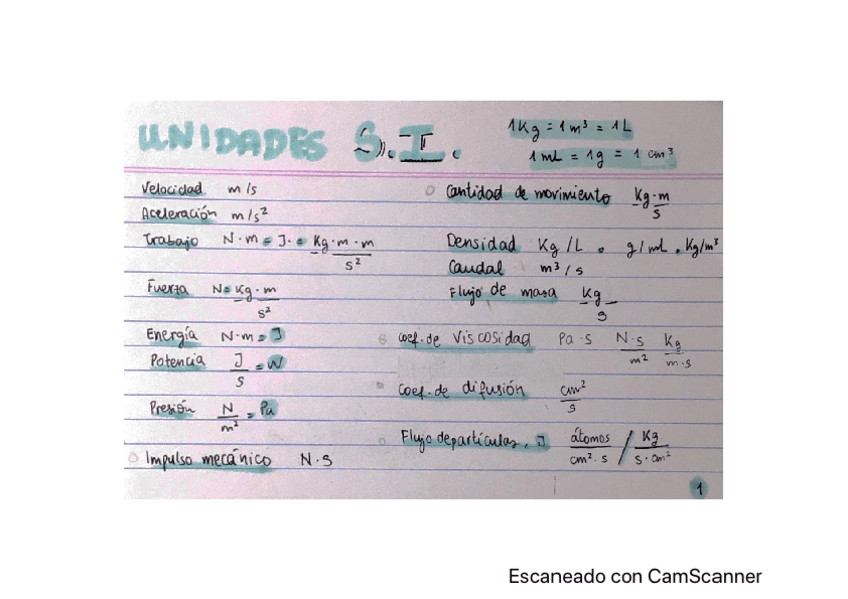 UNIDADES S.I.
1Kg = 1m³ = 1L
1mL = 1g = 1 cm³
Velocidad m/s
Aceleración m/s²
Trabajo N·m = J· = Kg·m·m / s²
Fuerza N = Kg·m / s²
Energía N·m = J
Potencia J/s = W
Presión N/m² = Pa
Impulso mecánico N·s
Cantidad de movimiento Kg·m / s
Densidad Kg/L • g/mL • Kg/m³
Caudal m³/s
Flujo de masa Kg / s
Coef. de Viscosidad Pa·s N·s/m² Kg/m·s
Coef. de difusión cm²/s
Flujo de partículas, J átomos/cm²·s / Kg/s·cm²
1
Escaneado con CamScanner